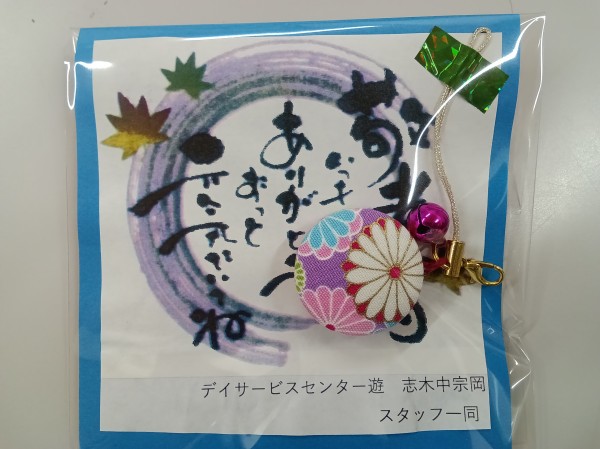 敬老の
いつも
ありがとう
ずっと
元気でいてね
デイサービスセンター遊　志木中宗岡
スタッフ一同